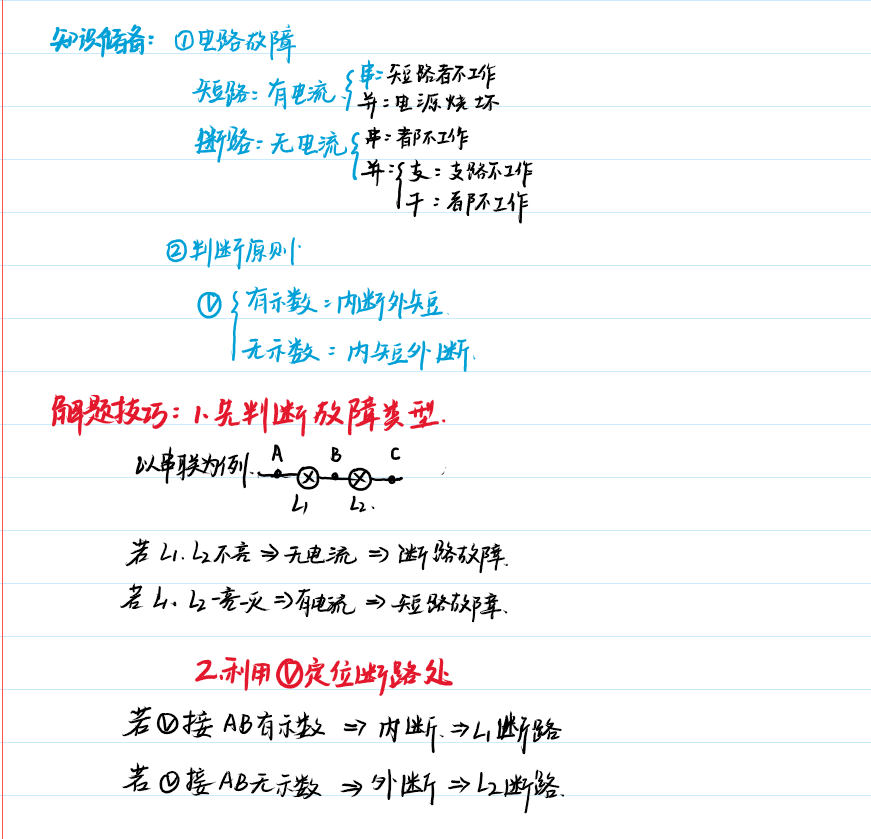 知识储备：①电路故障
短路：有电流 串：短路者不工作
并：电源烧坏
断路：无电流 串：都不工作
并：支：支路不工作
干：都不工作
②判断原则
Ⓥ 有示数：内断外短.
无示数：内短外断.
解题技巧：1.先判断故障类型.
以串联为例. A B C
L₁ L₂.
若L₁.L₂不亮⇒无电流⇒断路故障.
若L₁、L₂一亮一灭⇒有电流⇒短路故障.
2.利用Ⓥ定位断路处
若Ⓥ接AB有示数⇒内断.⇒L₁断路
若Ⓥ接AB无示数⇒外断⇒L₂断路.